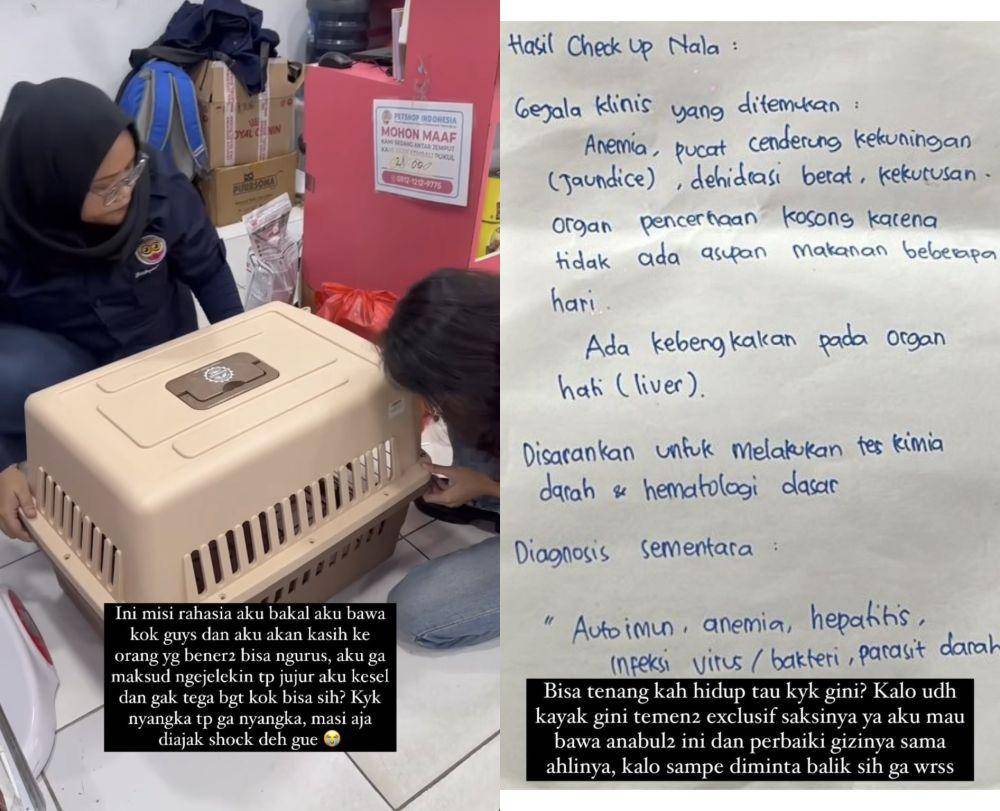 ROYAL CANIN
PETSHOP INDONESIA
MOHON MAAF
KAMI SEDANG ANTAR JEMPUT
PUKUL
21.00
0812-1212-9775
Ini misi rahasia aku bakal aku bawa
kok guys dan aku akan kasih ke
orang yg bener2 bisa ngurus, aku ga
maksud ngejelekin tp jujur aku kesel
dan gak tega bgt kok bisa sih? Kyk
nyangka tp ga nyangka, masi aja
diajak shock deh gue 😭
Hasil Check Up Nala :
Gejala klinis yang ditemukan :
Anemia, pucat cenderung kekuningan
(Jaundice), dehidrasi berat, kekurusan.
organ pencernaan kosong karena
tidak ada asupan makanan beberapa
hari.
Ada kebengkakan pada organ
hati (liver).
Disarankan untuk melakukan tes kimia
darah & hematologi dasar
Diagnosis sementara :
" Autoimun, anemia, hepatitis,
infeksi virus / bakteri, parasit darah
Bisa tenang kah hidup tau kyk gini? Kalo udh
kayak gini temen2 exclusif saksinya ya aku mau
bawa anabul2 ini dan perbaiki gizinya sama
ahlinya, kalo sampe diminta balik sih ga wrss